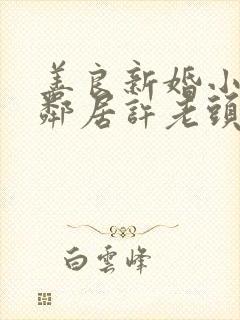 善良新婚小
鄰居許老頭
白雲峰